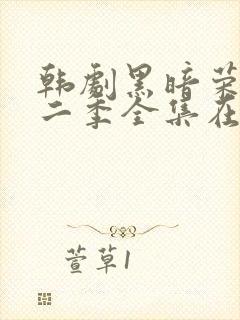 韩剧黑暗荣
二季全集在
萱草1